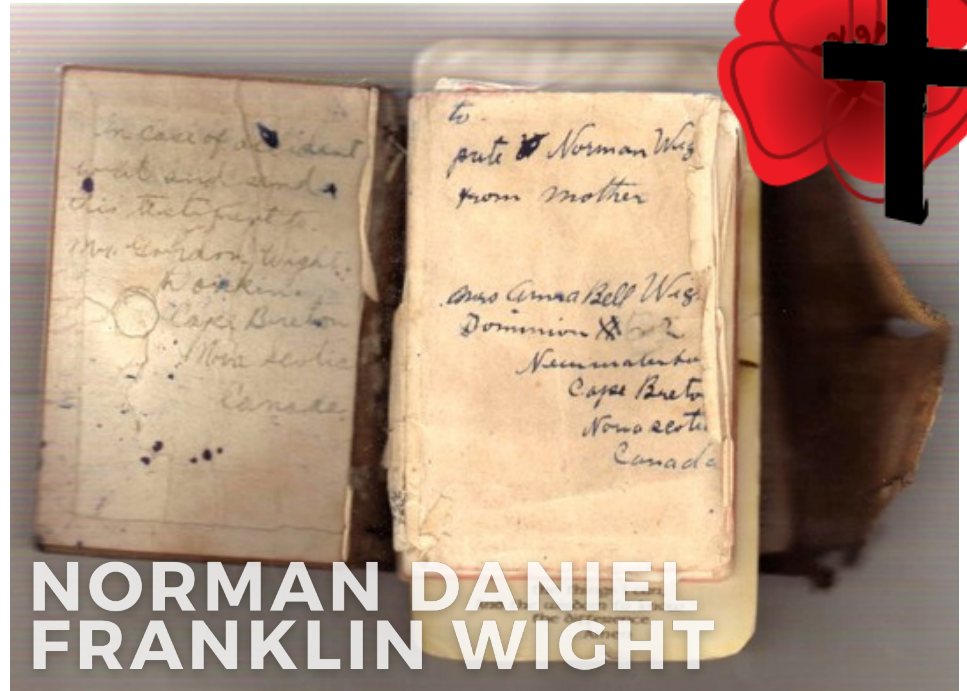 In case of accident
and send
this testament to
Mrs. Gordon Wight
Cape Breton
Nova scotia
Canada
to
pvte Norman Wig
from mother
Mrs Anna Bell Wig
Dominion
Cape Breto
Nova scoti
Canada
the difference
NORMAN DANIEL
FRANKLIN WIGHT